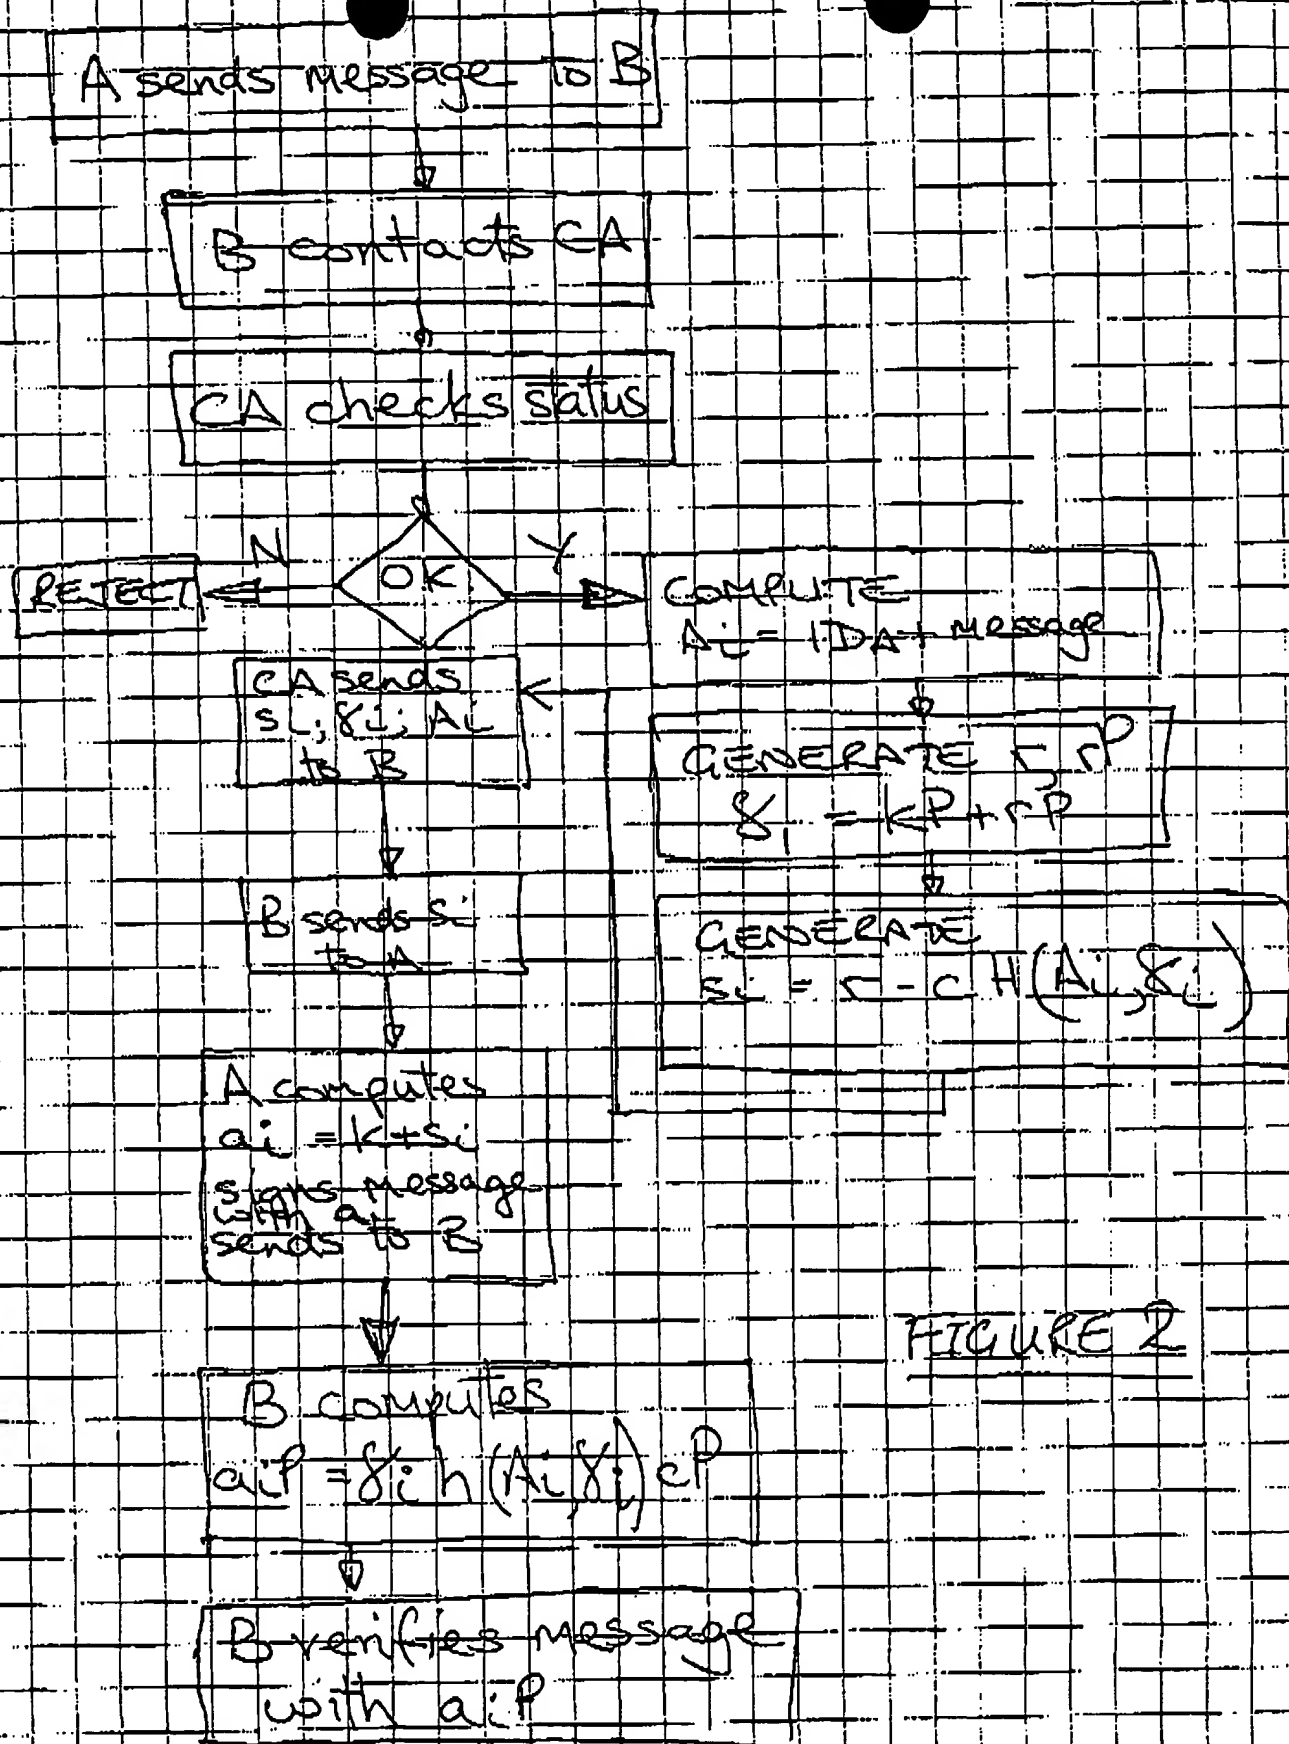 A sends message to B
B contacts CA
CA checks status
OK
N
Y
REJECT
COMPUTE
Ai = IDA + message
GENERATE r, rP
γi = kP + rP
GENERATE
si = r - c H(Ai, γi)
CA sends
si, γi, Ai
to B
B sends si
to A
A computes
ai = k+si
signs message
with a
sends to B
B computes
aiP = γi h(Ai, γi) cP
B verifies message
with aiP
FIGURE 2